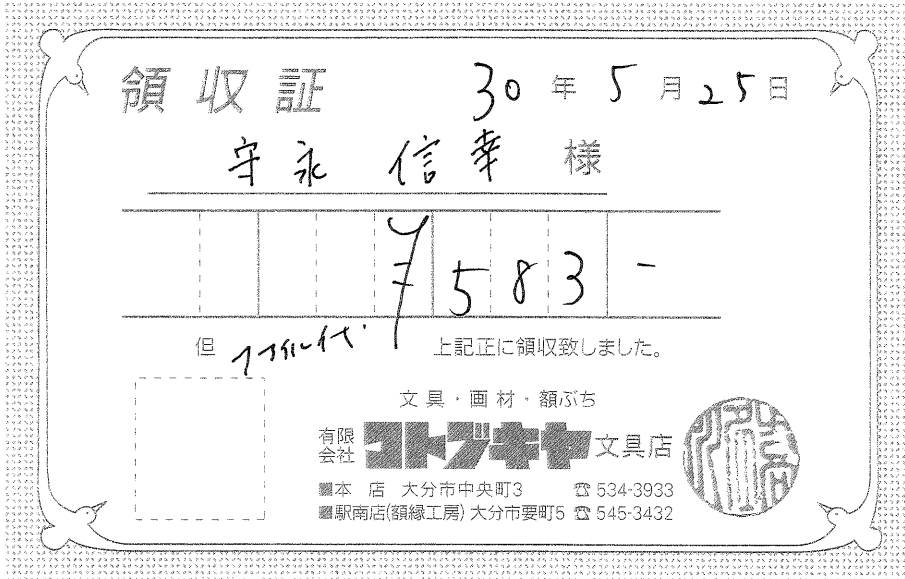 領収証 30年5月25日
守永 信幸 様
¥583-
但 ファイル代. 上記正に領収致しました。
文具・画材・額ぶち
有限会社 コトブキヤ 文具店
■本 店 大分市中央町3 ☎534-3933
■駅南店(額縁工房) 大分市要町5 ☎545-3432